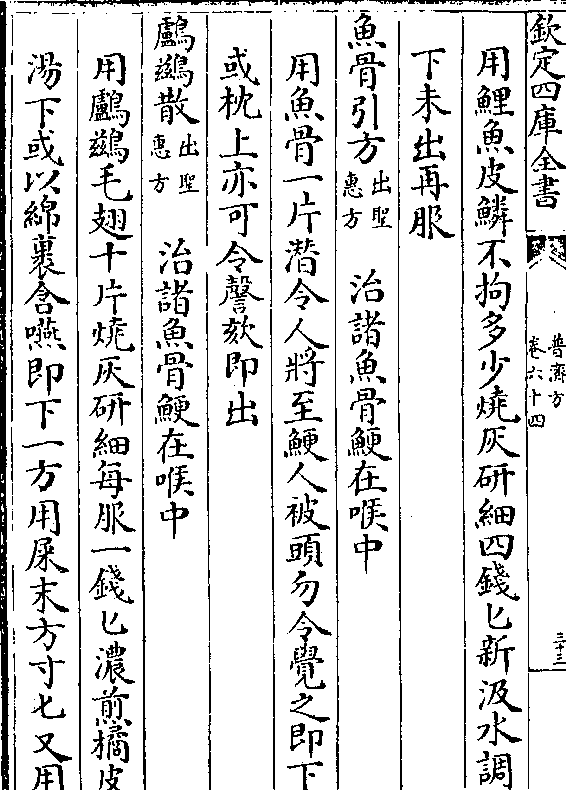 欽定四庫全書
普濟方
卷六十四
三十三
用鯉魚皮鱗不拘多少燒灰研細四錢匕新汲水調
下未出再服
魚骨引方出聖惠方 治諸魚骨鯁在喉中
用魚骨一片潛令人將至鯁人被頭勿令覺之即下
或枕上亦可令謦欬即出
鸕鷀散出聖惠方 治諸魚骨鯁在喉中
用鸕鷀毛翅十片燒灰研細每服一錢匕濃煎橘皮
湯下或以綿裹含嚥即下一方用屎末方寸匕又用